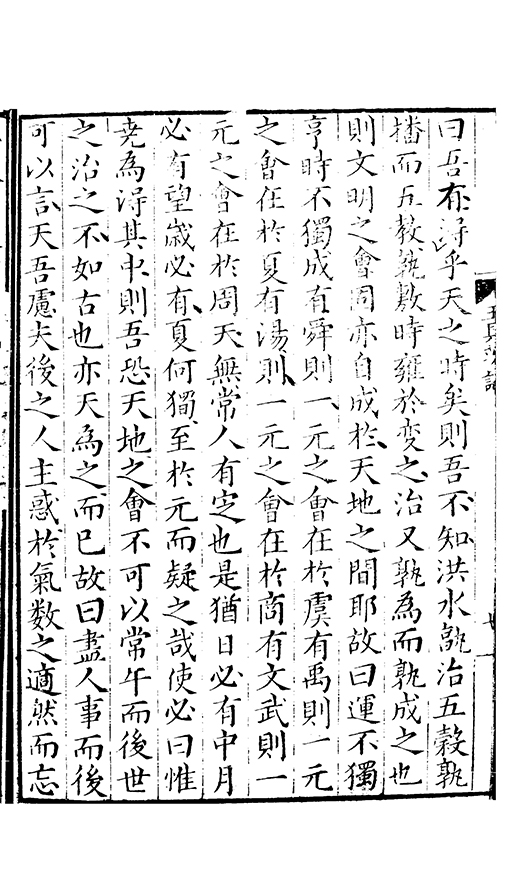 曰吾有得乎天之時矣則吾不知洪水孰治五榖孰
播而五教孰敷時雍於变之治又孰為而孰成之也
則文明之會固亦自成於天地之間耶故曰運不獨
亨時不獨成有舜則一元之會在於虞有禹則一元
之會在於夏有湯則一元之會在於商有文武則一
元之會在於周天無常人有定也是猶日必有中月
必有望歲必有夏何獨至於元而疑之哉使必曰惟
尭為得其中則吾恐天地之會不可以常午而後世
之治之不如古也亦天為之而已故曰盡人事而後
可以言天吾慮夫後之人主惑於氣数之適然而忘